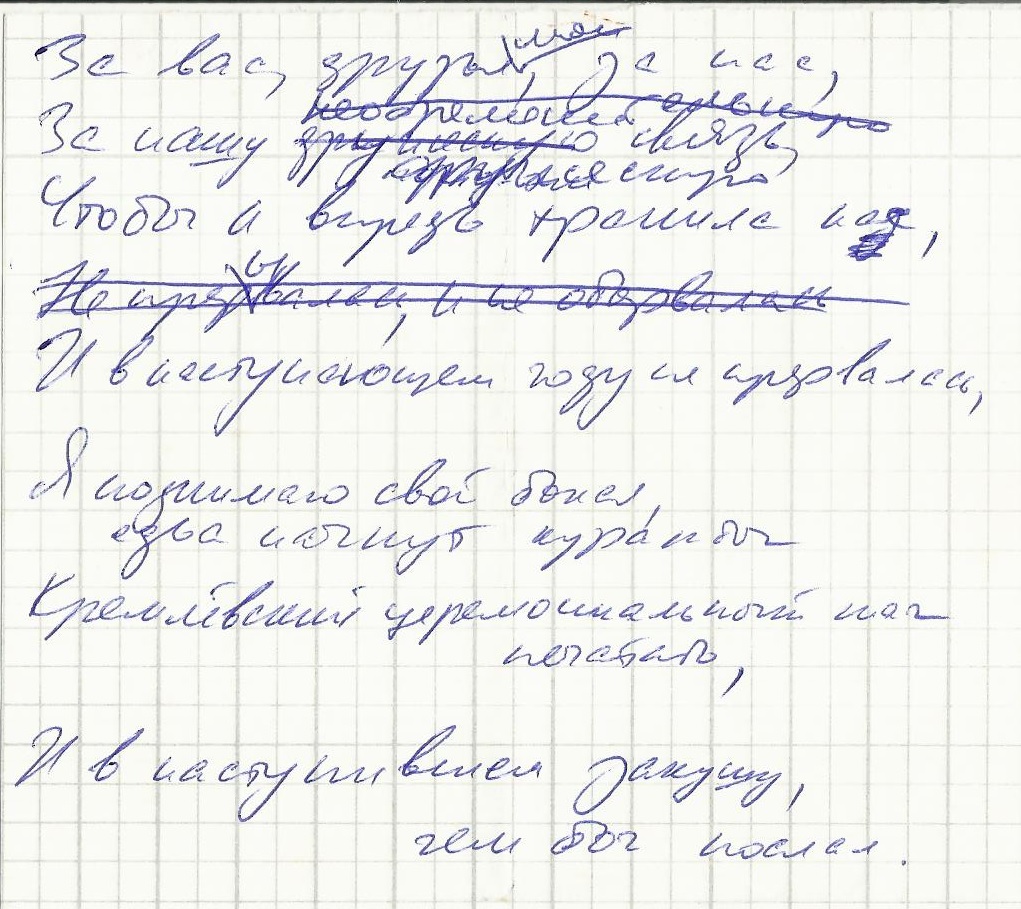 За вас, друзья мои, за нас,
необременительную
За нашу дружескую связь,
дружескую
Чтобы и впредь хранила нас,
Не прерывалась, и не обрывалась
И в наступающем году не прервалась,
Я поднимаю свой бокал,
едва начнут куранты
Кремлёвский церемониальный шаг
печатать,
И в наступившем закушу,
чем бог послал.